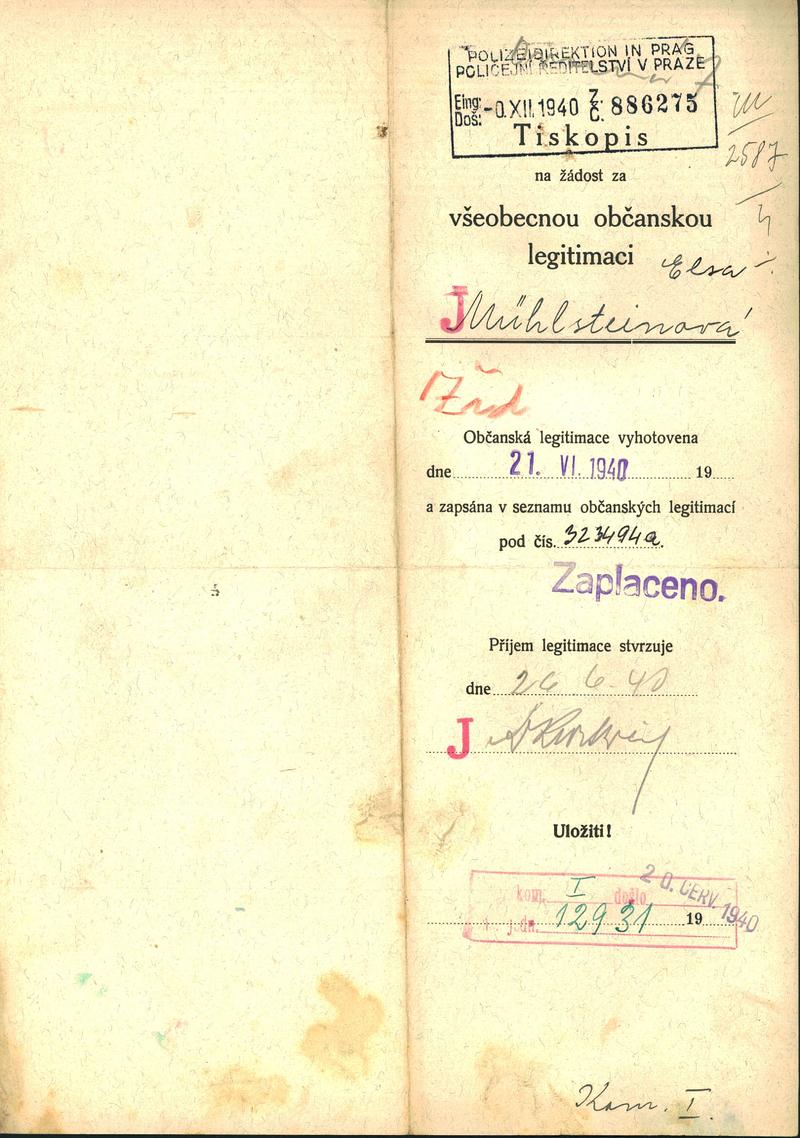 POLIZEIDIREKTION IN PRAG
POLICEJNÍ ŘEDITELSTVÍ V PRAZE
Eing: Došl: XII. 1940 Z. Č. 886275
III
2587
Tiskopis
na žádost za
všeobecnou občanskou
legitimaci
Elsa
J Mühlsteinová
Občanská legitimace vyhotovena
dne 21. VI. 1940 19
a zapsána v seznamu občanských legitimací
pod čís. 323494a.
Zaplaceno.
Příjem legitimace stvrzuje
dne 26 6. 40
J
Uložiti!
kom. I došlo 20. ČERV. 1940
č. j. dn. 12931 19
Kom. I.